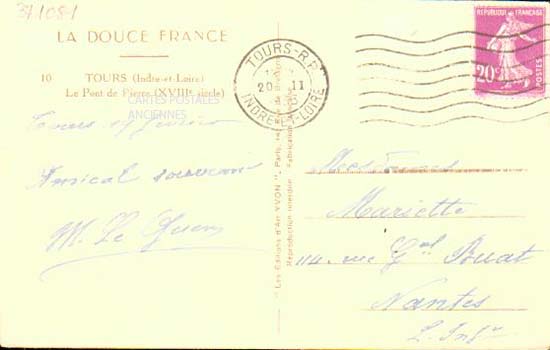 371081
LA DOUCE FRANCE
10 TOURS (Indre-et-Loire)
Le Pont de Pierre (XVIIIe siècle)
CARTES POSTALES
ANCIENNES
Tours
Amical souvenir
M. Le
"Les Editions d'Art YVON", Paris,
Reproduction interdite Fabrication
TOURS-R.P.
20 11
INDRE-ET-LOIRE
REPUBLIQUE FRANÇAISE
20c
POSTES
Mesdames
Mariette
114 rue Gal Buat
Nantes
L. Infre